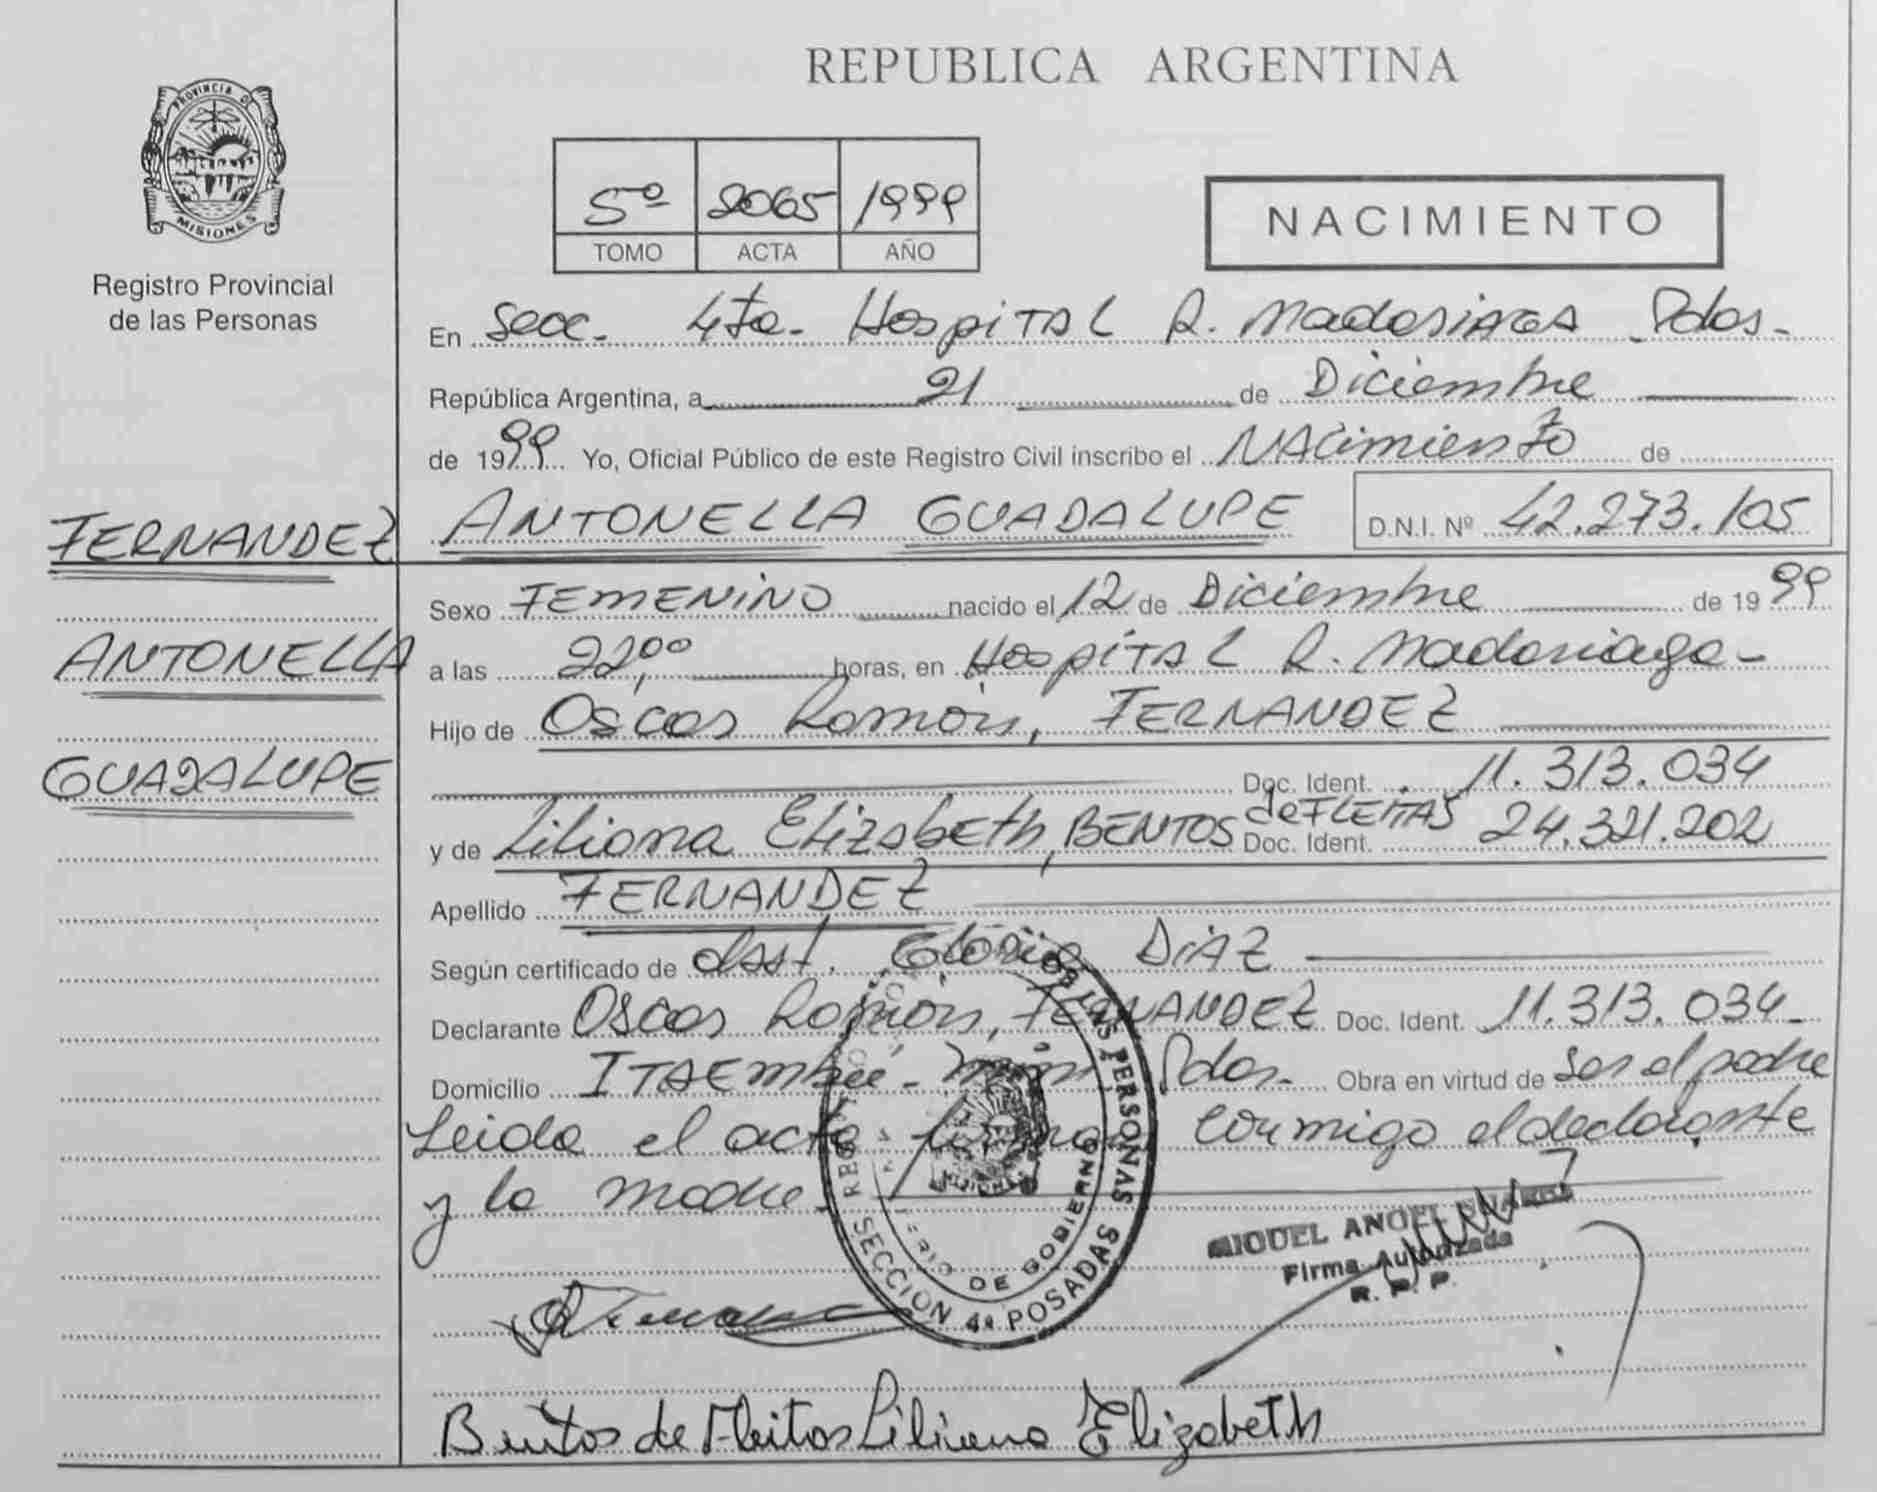 REPUBLICA ARGENTINA
PROVINCIA DE
MISIONES
Registro Provincial
de las Personas
5º 2065 1999
TOMO ACTA AÑO
NACIMIENTO
En Secc. 4ta. Hospital R. Madariaga Pdas.
República Argentina, a 21 de Diciembre
de 1999 Yo, Oficial Público de este Registro Civil inscribo el Nacimiento de
FERNANDEZ ANTONELLA GUADALUPE D.N.I. Nº 42.273.105
Sexo FEMENINO nacido el 12 de Diciembre de 1999
ANTONELLA
a las 22,00 horas, en Hospital R. Madariaga-
Hijo de Oscar Ramón, FERNANDEZ
GUADALUPE
Doc. Ident. 11.313.034
y de Liliana Elizabeth, BENTOS de FLEITAS Doc. Ident. 24.321.202
Apellido FERNANDEZ
Según certificado de Obst. Gloria DIAZ
Declarante Oscar Ramón, FERNANDEZ Doc. Ident. 11.313.034-
Domicilio ITAEMbé-Miní Pdas.- Obra en virtud de ser el padre
Leida el acta firman conmigo el declarante
y la madre.
DE LAS PERSONAS
SECCION 4a POSADAS
DE GOBIERNO
MISIONES
MIGUEL ANGEL
Firma Autorizada
R. P. P.
Bentos de Fleitas Liliana Elizabeth